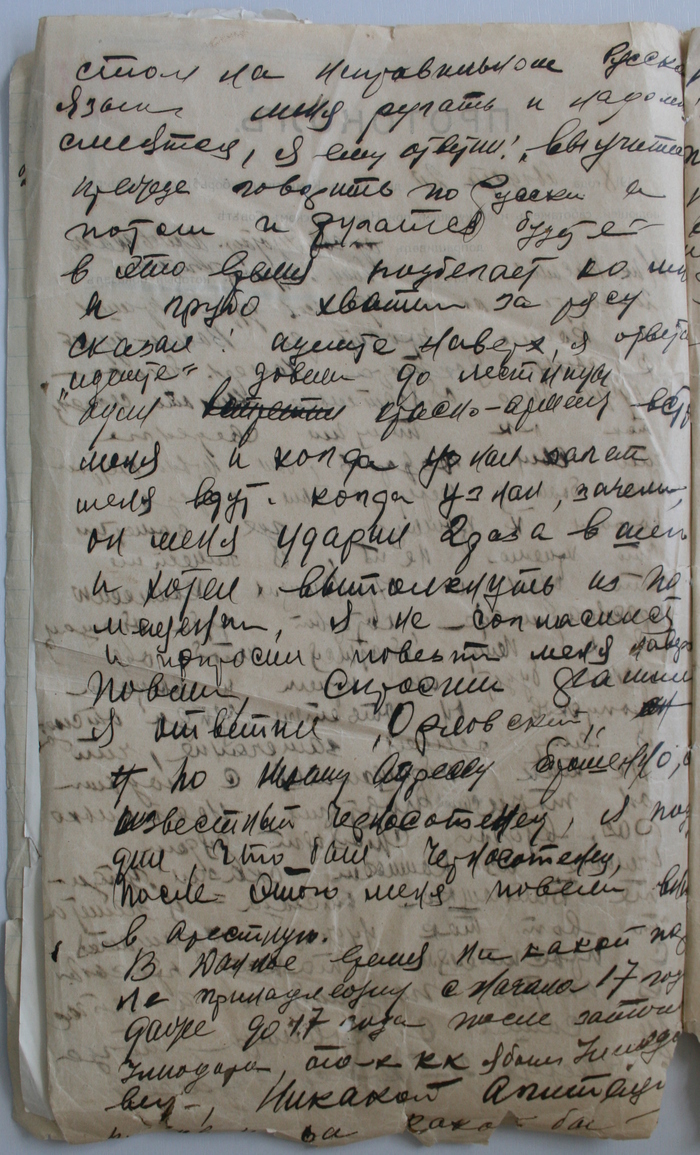 стом на неправильном Русско
языке меня ругать и
смеятся, я ему ответил! „выучитесь
прежде говорить по Русски а
потом и ругатся будете
в это время подбегает ко мне
и грубо хватил за руку
сказал! идите наверх, я ответил
„идите" довели до лестницы
красно-армеец
меня и когда узнал
меня ведут. когда узнал, зачем,
он меня ударил 2 раза в шею
и хотел вытолкнуть из по
мещения, я не согласился
и попросил повести меня наверх
повели, спросили фамилию
я ответил „Орловский„
и по моему адресу брошено,
известный черносотенец, я под
дил, что был черносотенец,
после этого меня повели
в арестную.
В данное время ни какой
не принадлежу с начала 17 года
даже до 17 года после
Илиодора, я был Илиодо
вец, Никакой Агитации
за какой бы